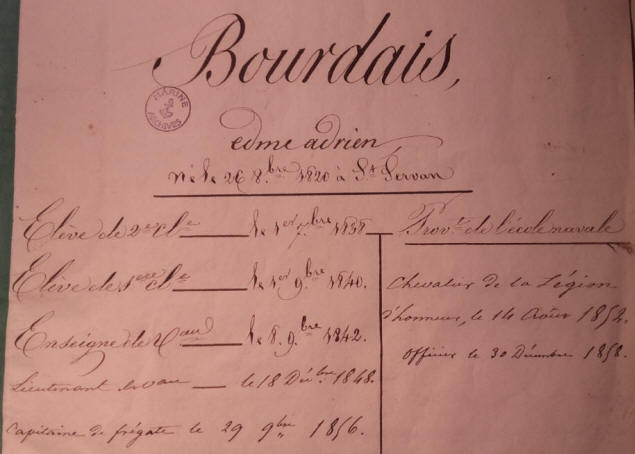 Bourdais,
MARINE
ARCHIVES
edme adrien,
né le 26 8.bre 1820 à St Servan
Elève de 2e cl.se le 1er 7.bre 183
Prov.t de l'école navale
Elève de 1ere cl.se le 1er 9.bre 1840.
Chevalier de la Légion
d'honneur, le 14 Août 1852.
Enseigne de Vau le 8. 9.bre 1842.
officier le 30 Décembre 1858.
Lieutenant de vau le 18 Déc.bre 1848.
Capitaine de frégate le 29 9bre 1856.